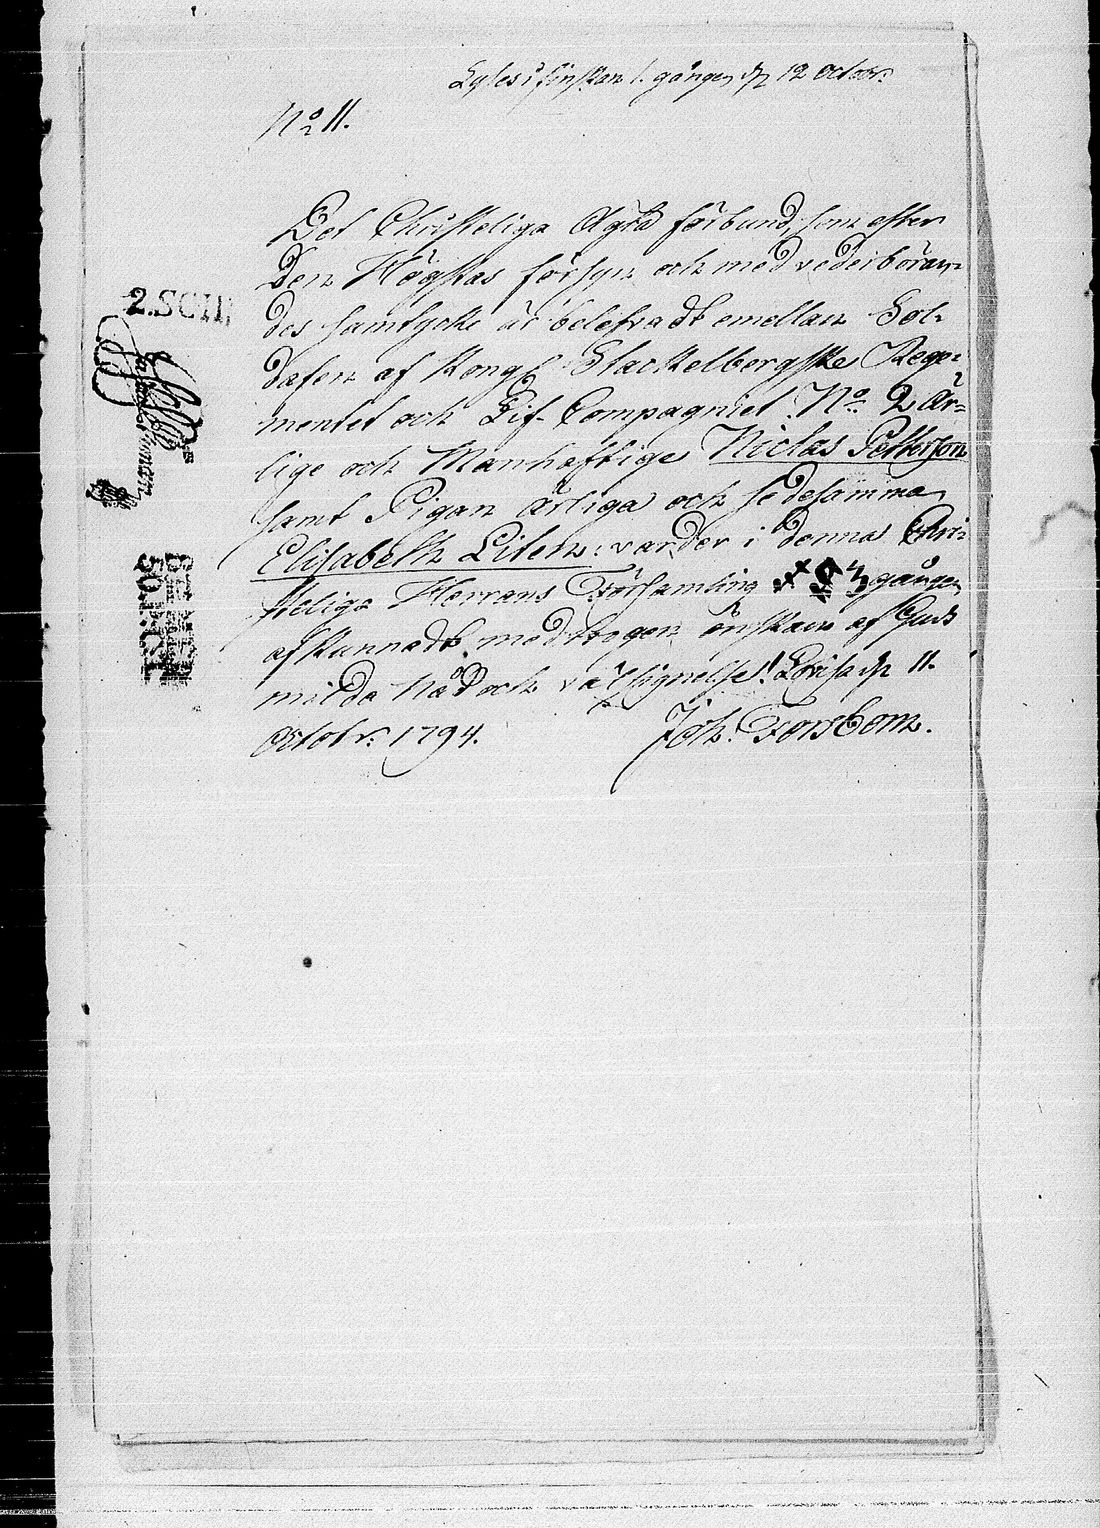 Lyses i finskan 1. gången d. 12 Octobr.
No 11.
Det Christeliga Ägta förbund, som efter
Den Högstas försyn och med vederböran-
des samtycke är belefvadt emellan Sol-
daten af Kongl. Stackelbergske Rege-
mentet och Lif-Compagniet No. 2 Är-
lige och Manhaftige Niclas Petterson
samt Pigan ärliga och sedesamma
Elisabeth Liten: varder i denna Chri-
steliga Herrans Församling gången
afkunnadt, med trogen önskan af Guds
milda Nåd och välsignelse! Lovisa d. 11.
Octobr. 1794.
Joh. Forsbom.
2. SCH.
50. P. C. S. T.